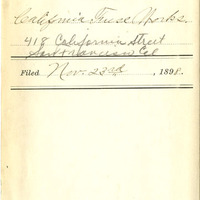 California Fuse Works.
418 California Street
San Francisco Cal
Filed Nov. 23rd, 1898.